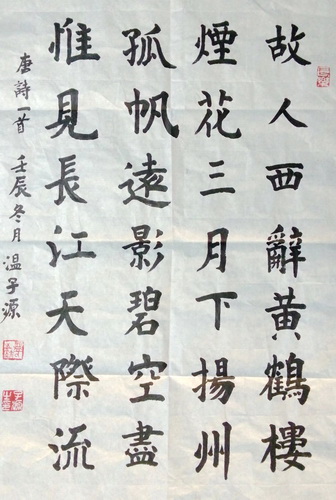 故人西辭黃鶴樓
煙花三月下揚州
孤帆遠影碧空盡
惟見長江天際流
唐詩一首 壬辰冬月 温子源